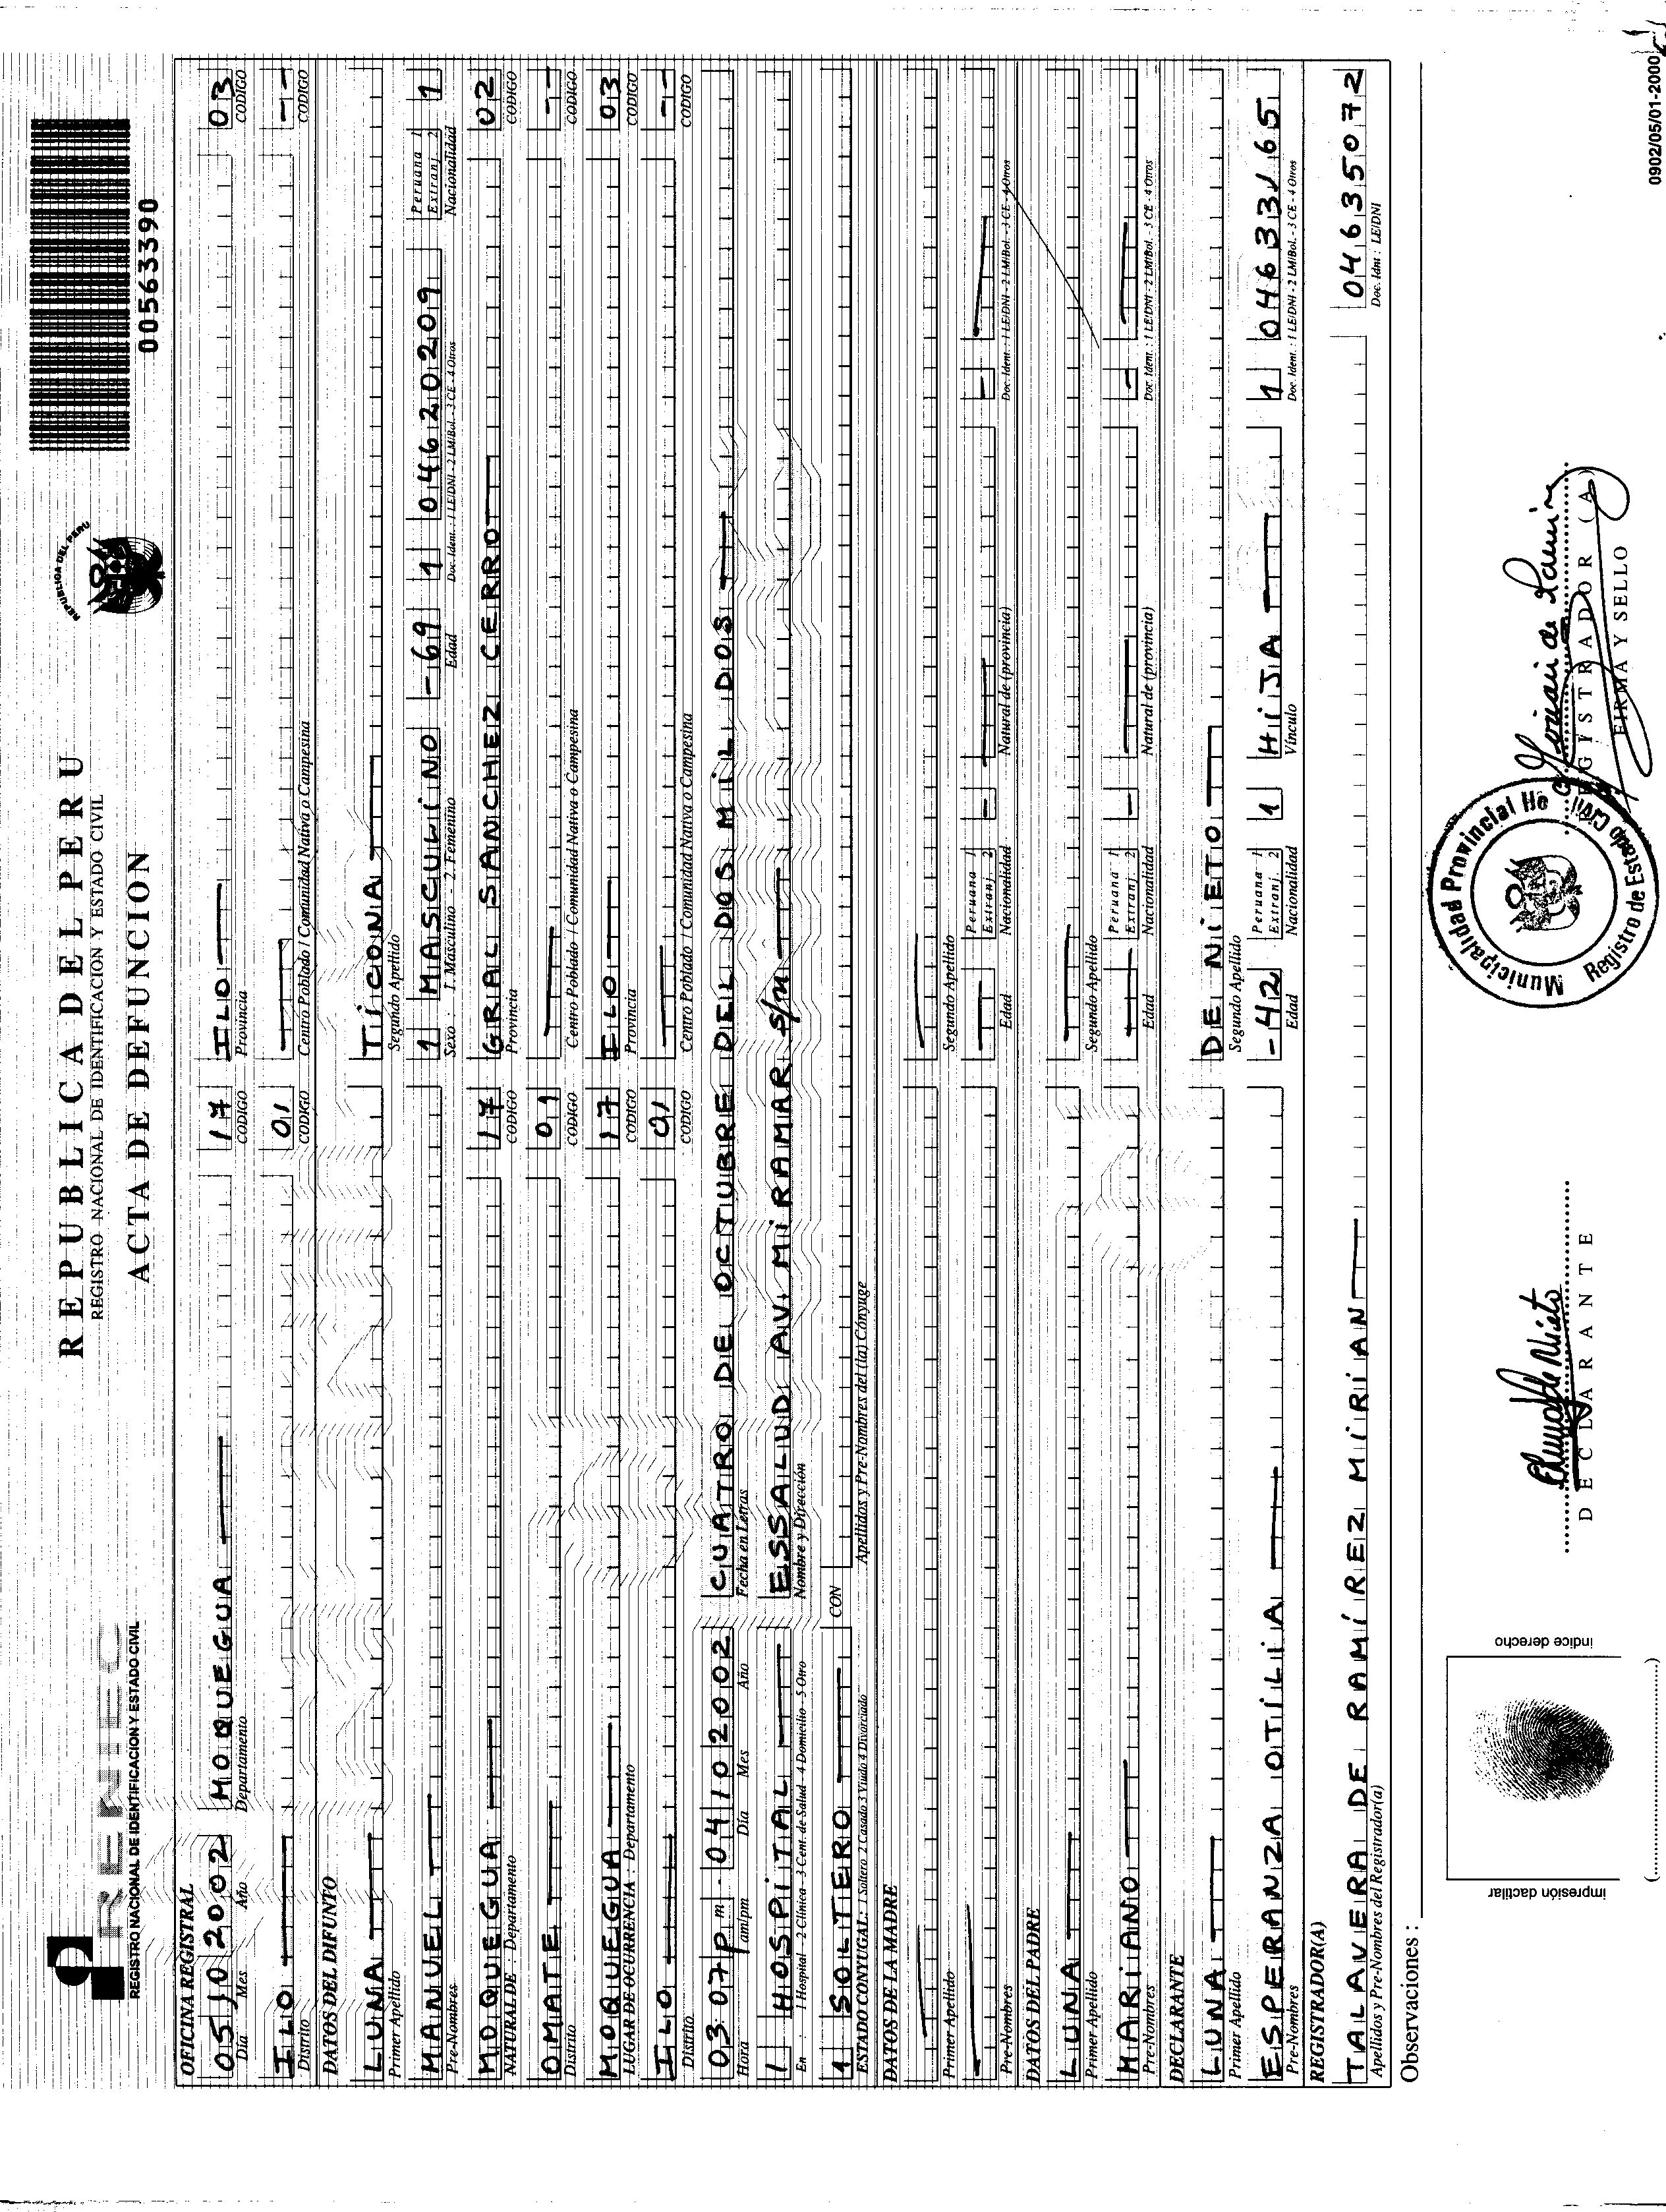 RENIEC
REGISTRO NACIONAL DE IDENTIFICACION Y ESTADO CIVIL
REPUBLICA DEL PERU
REGISTRO NACIONAL DE IDENTIFICACION Y ESTADO CIVIL
ACTA DE DEFUNCION
REPUBLICA DEL PERU
00563390
OFICINA REGISTRAL
05 10 2002 MOQUEGUA 17 ILO 03
Día Mes Año Departamento CODIGO Provincia CODIGO
ILO 01 --
Distrito CODIGO Centro Poblado / Comunidad Nativa o Campesina CODIGO
DATOS DEL DIFUNTO
LUNA TICONA
Primer Apellido Segundo Apellido
MANUEL 1 MASCULINO -69 1 04620209 Peruana 1 Extranj. 2 1
Pre-Nombres Sexo : 1. Masculino - 2. Femenino Edad Doc. Ident. : 1 LE/DNI - 2 LM/Bol. - 3 CE - 4 Otros Nacionalidad
MOQUEGUA 17 GRAL SANCHEZ CERRO 02
NATURAL DE : Departamento CODIGO Provincia CODIGO
OMATE 01 --
Distrito CODIGO Centro Poblado / Comunidad Nativa o Campesina CODIGO
MOQUEGUA 17 ILO 03
LUGAR DE OCURRENCIA : Departamento CODIGO Provincia CODIGO
ILO 01 --
Distrito CODIGO Centro Poblado / Comunidad Nativa o Campesina CODIGO
03:07 pm. 04 10 2002 CUATRO DE OCTUBRE DEL DOS MIL DOS
Hora am/pm Día Mes Año Fecha en Letras
1 HOSPITAL ESSALUD AV. MIRAMAR S/N
En : 1 Hospital 2 Clínica - 3 Cent. de Salud - 4 Domicilio - 5 Otro Nombre y Dirección
1 SOLTERO CON
ESTADO CONYUGAL: 1 Soltero 2 Casado 3 Viudo 4 Divorciado Apellidos y Pre-Nombres del (la) Cónyuge
DATOS DE LA MADRE
Primer Apellido Segundo Apellido
- Peruana 1 Extranj. 2 - -
Pre-Nombres Edad Nacionalidad Natural de (provincia) Doc. Ident. : 1 LE/DNI - 2 LM/Bol. - 3 CE - 4 Otros
DATOS DEL PADRE
LUNA
Primer Apellido Segundo Apellido
MARIANO Peruana 1 Extranj. 2 - -
Pre-Nombres Edad Nacionalidad Natural de (provincia) Doc. Ident. : 1 LE/DNI - 2 LM/Bol. - 3 CE - 4 Otros
DECLARANTE
LUNA DE NIETO
Primer Apellido Segundo Apellido
ESPERANZA OTILIA -42 Peruana 1 Extranj. 2 1 HIJA 1 04633165
Pre-Nombres Edad Nacionalidad Vínculo Doc. Ident. : 1 LE/DNI - 2 LM/Bol. - 3 CE - 4 Otros
REGISTRADOR(A)
TALAVERA DE RAMÍREZ MIRIAN 04635072
Apellidos y Pre-Nombres del Registrador(a) Doc. Idnt : LE/DNI
Observaciones :
impresión dactilar
índice derecho
DECLARANTE
Municipalidad Provincial
Registro de Estado Civil
REGISTRADOR (A)
FIRMA Y SELLO
0902/05/01-2000